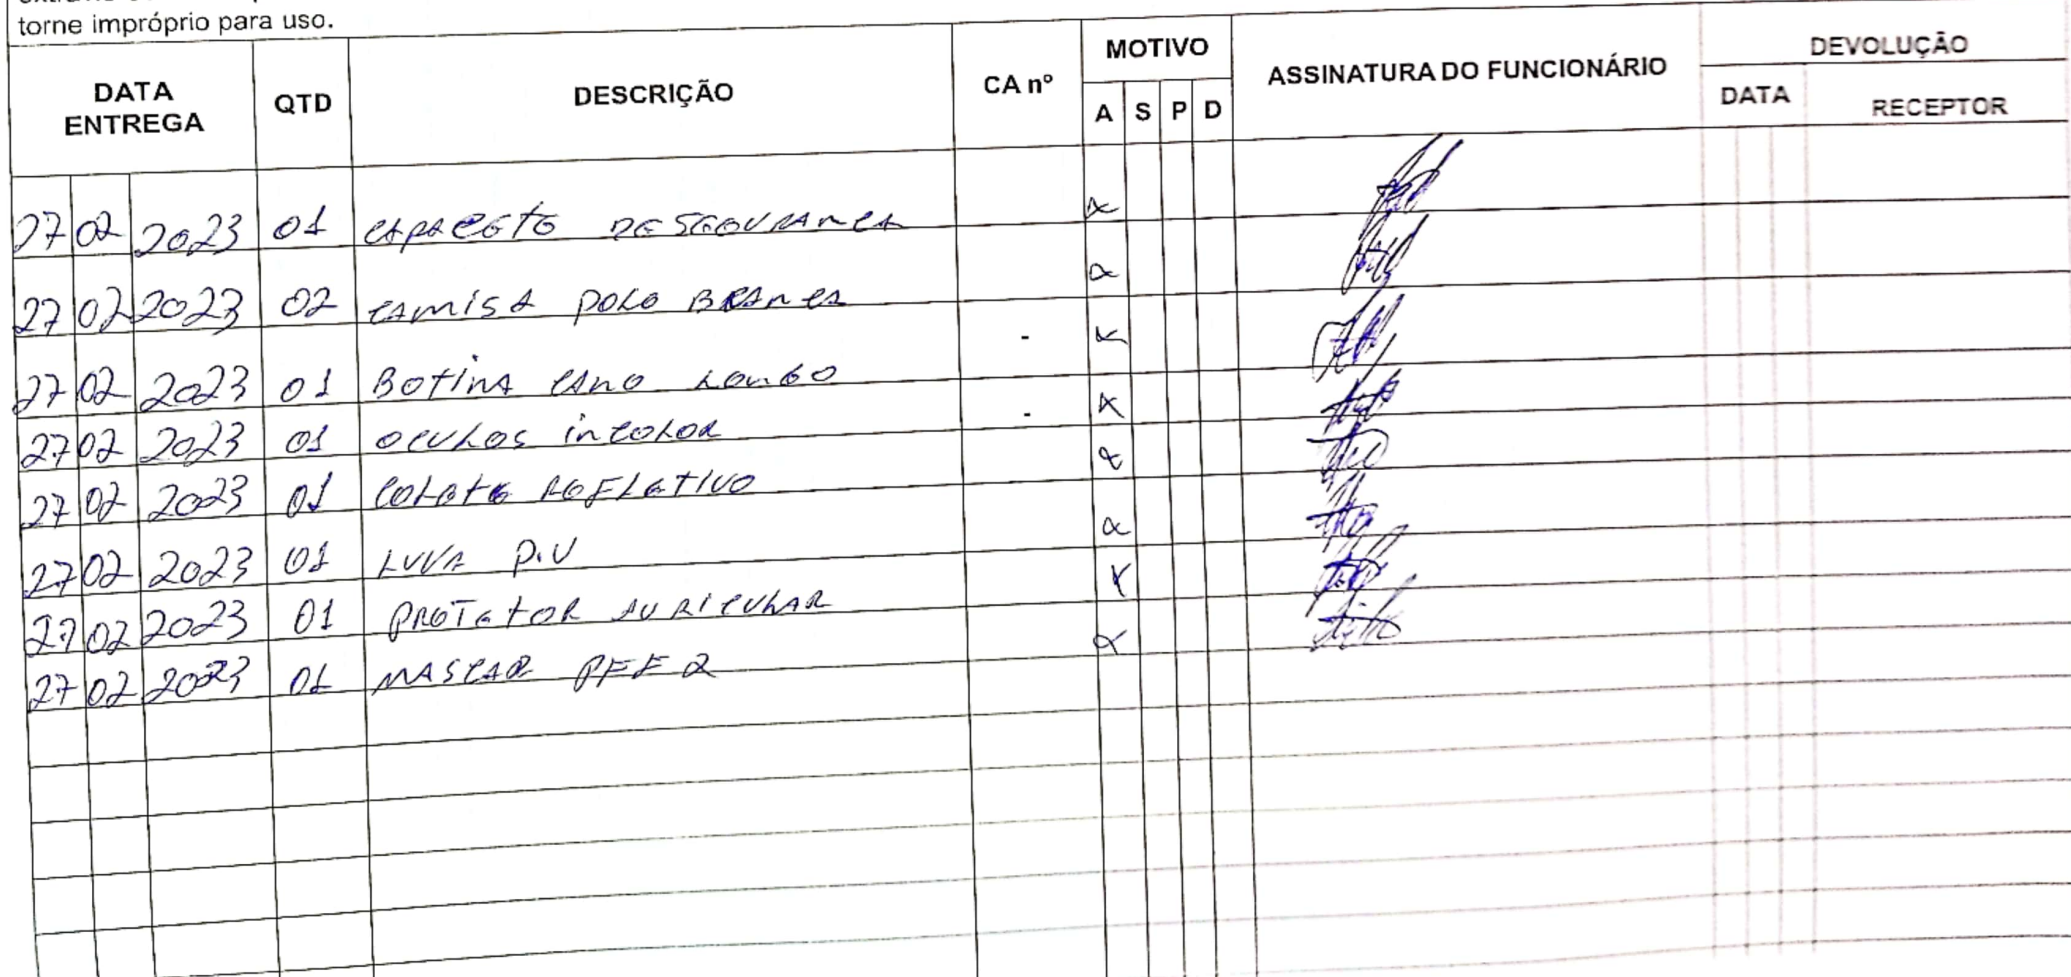 torne impróprio para uso.
DATA ENTREGA QTD DESCRIÇÃO CA nº MOTIVO A S P D ASSINATURA DO FUNCIONÁRIO DEVOLUÇÃO DATA RECEPTOR
27 02 2023 01 CAPACETE DE SEGURANCA x
27 02 2023 02 CAMISA POLO BRANCA x
27 02 2023 01 BOTINA CANO LONGO - x
27 02 2023 01 OCULOS INCOLOR - x
27 02 2023 01 COLETE REFLETIVO x
27 02 2023 01 LUVA P.U x
27 02 2023 01 PROTETOR AURICULAR x
27 02 2023 01 MASCAR PFF2 x